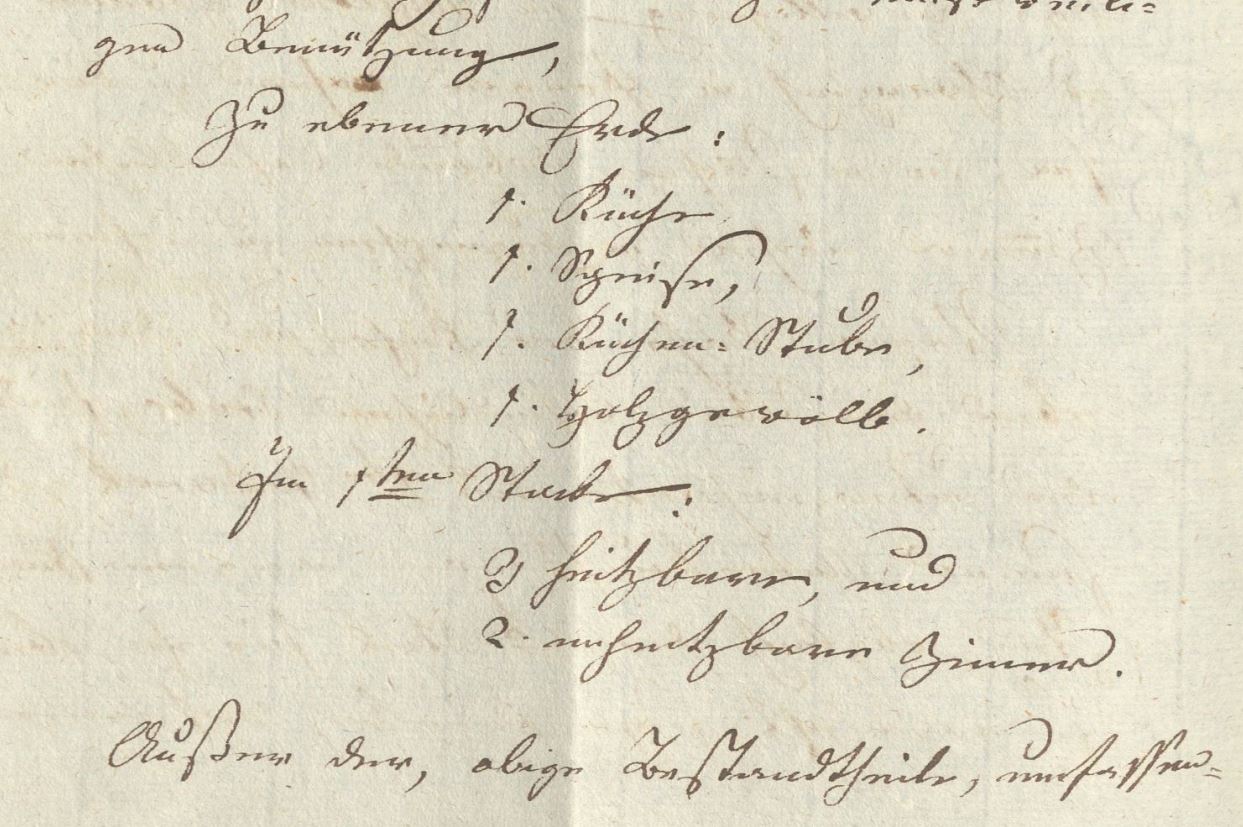 gen Benützung,
Zu ebener Erde:
1. Küche
1. Speise,
1. Küchen=Stube,
1. Holzgewölb.
Im 1ten Stocke:
3 heitzbare, und
2. unheitzbare Zimer.
Außer der, obige Bestandtheile, umfassen=